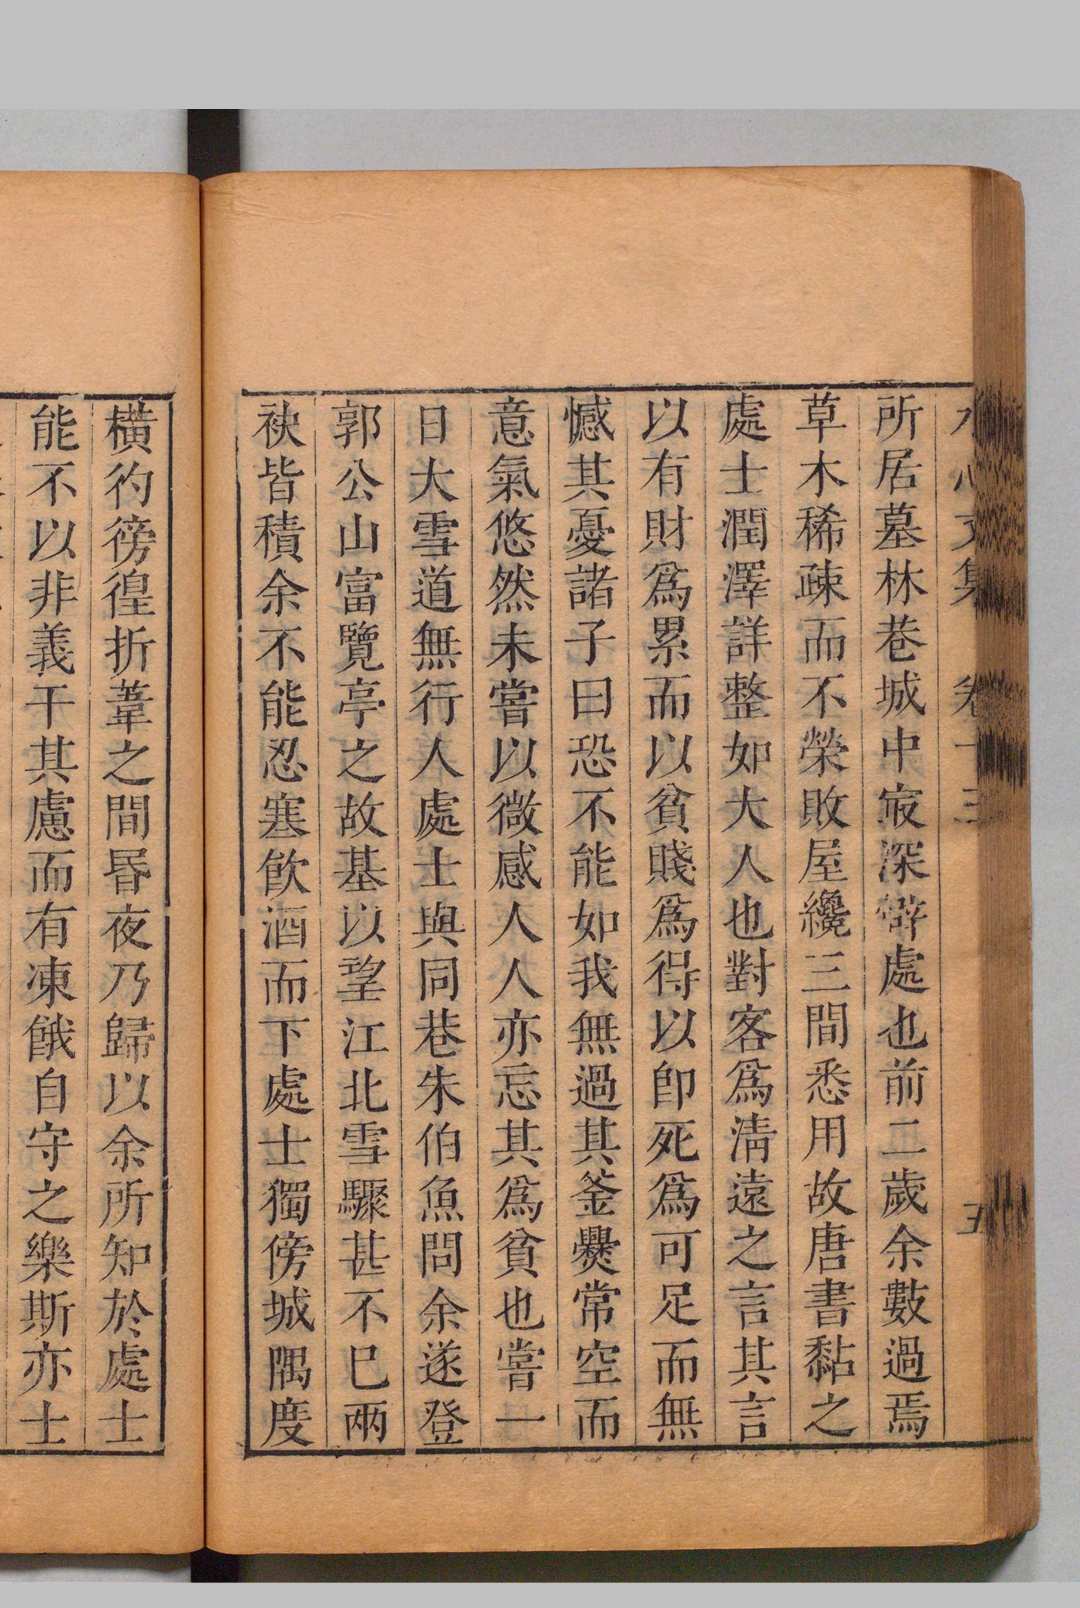 水心文集 卷十三 五
所居墓林巷城中㝡深僻處也前二歲余數過焉
草木稀疎而不榮敗屋纔三間悉用故唐書黏之
處士潤澤詳整如大人也對客爲淸遠之言其言
以有財爲累而以貧賤爲得以卽死爲可足而無
憾其憂諸子曰恐不能如我無過其釜㸑常空而
意氣悠然未嘗以微感人人亦忘其爲貧也嘗一
日大雪道無行人處士與同巷朱伯魚問余遂登
郭公山富覽亭之故基以望江北雪驟甚不已兩
袂皆積余不能忍寒飮酒而下處士獨傍城隅度
橫彴徬徨折葦之間昬夜乃歸以余所知於處士
能不以非義干其慮而有凍餓自守之樂斯亦士